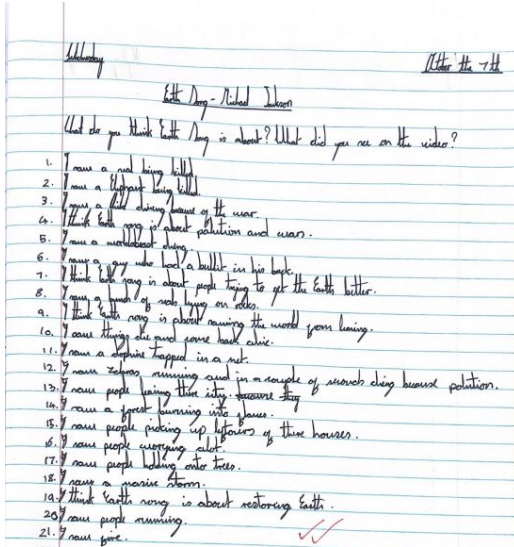 Wednesday October the 7th
Earth Song - Michael Jackson
What do you think Earth Song is about? What did you see on the video?
1. I saw a seal being killed.
2. I saw a Elephant being killed.
3. I saw a child dieing because of the war.
4. I think Earth song is about polution and war.
5. I saw a dieing.
6. I saw a guy who had a bullit in his back.
7. I think Earth song is about people trying to get the Earth better.
8. I saw a bunch of seals lying on rocks.
9. I think Earth song is about saving the world from
10. I saw things die and come back alive.
11. I saw a dolphine trapped in a net.
12. I saw zebras running and in a couple of seconds dieing because polution.
13. I saw people leaving there city. because they
14. I saw a forest burning into flames.
15. I saw people picking up leftovers of there houses.
16. I saw people worrying alot.
17. I saw people holding onto trees.
18. I saw a masive storm.
19. I think Earth song is about restoring Earth.
20. I saw people running.
21. I saw fire.